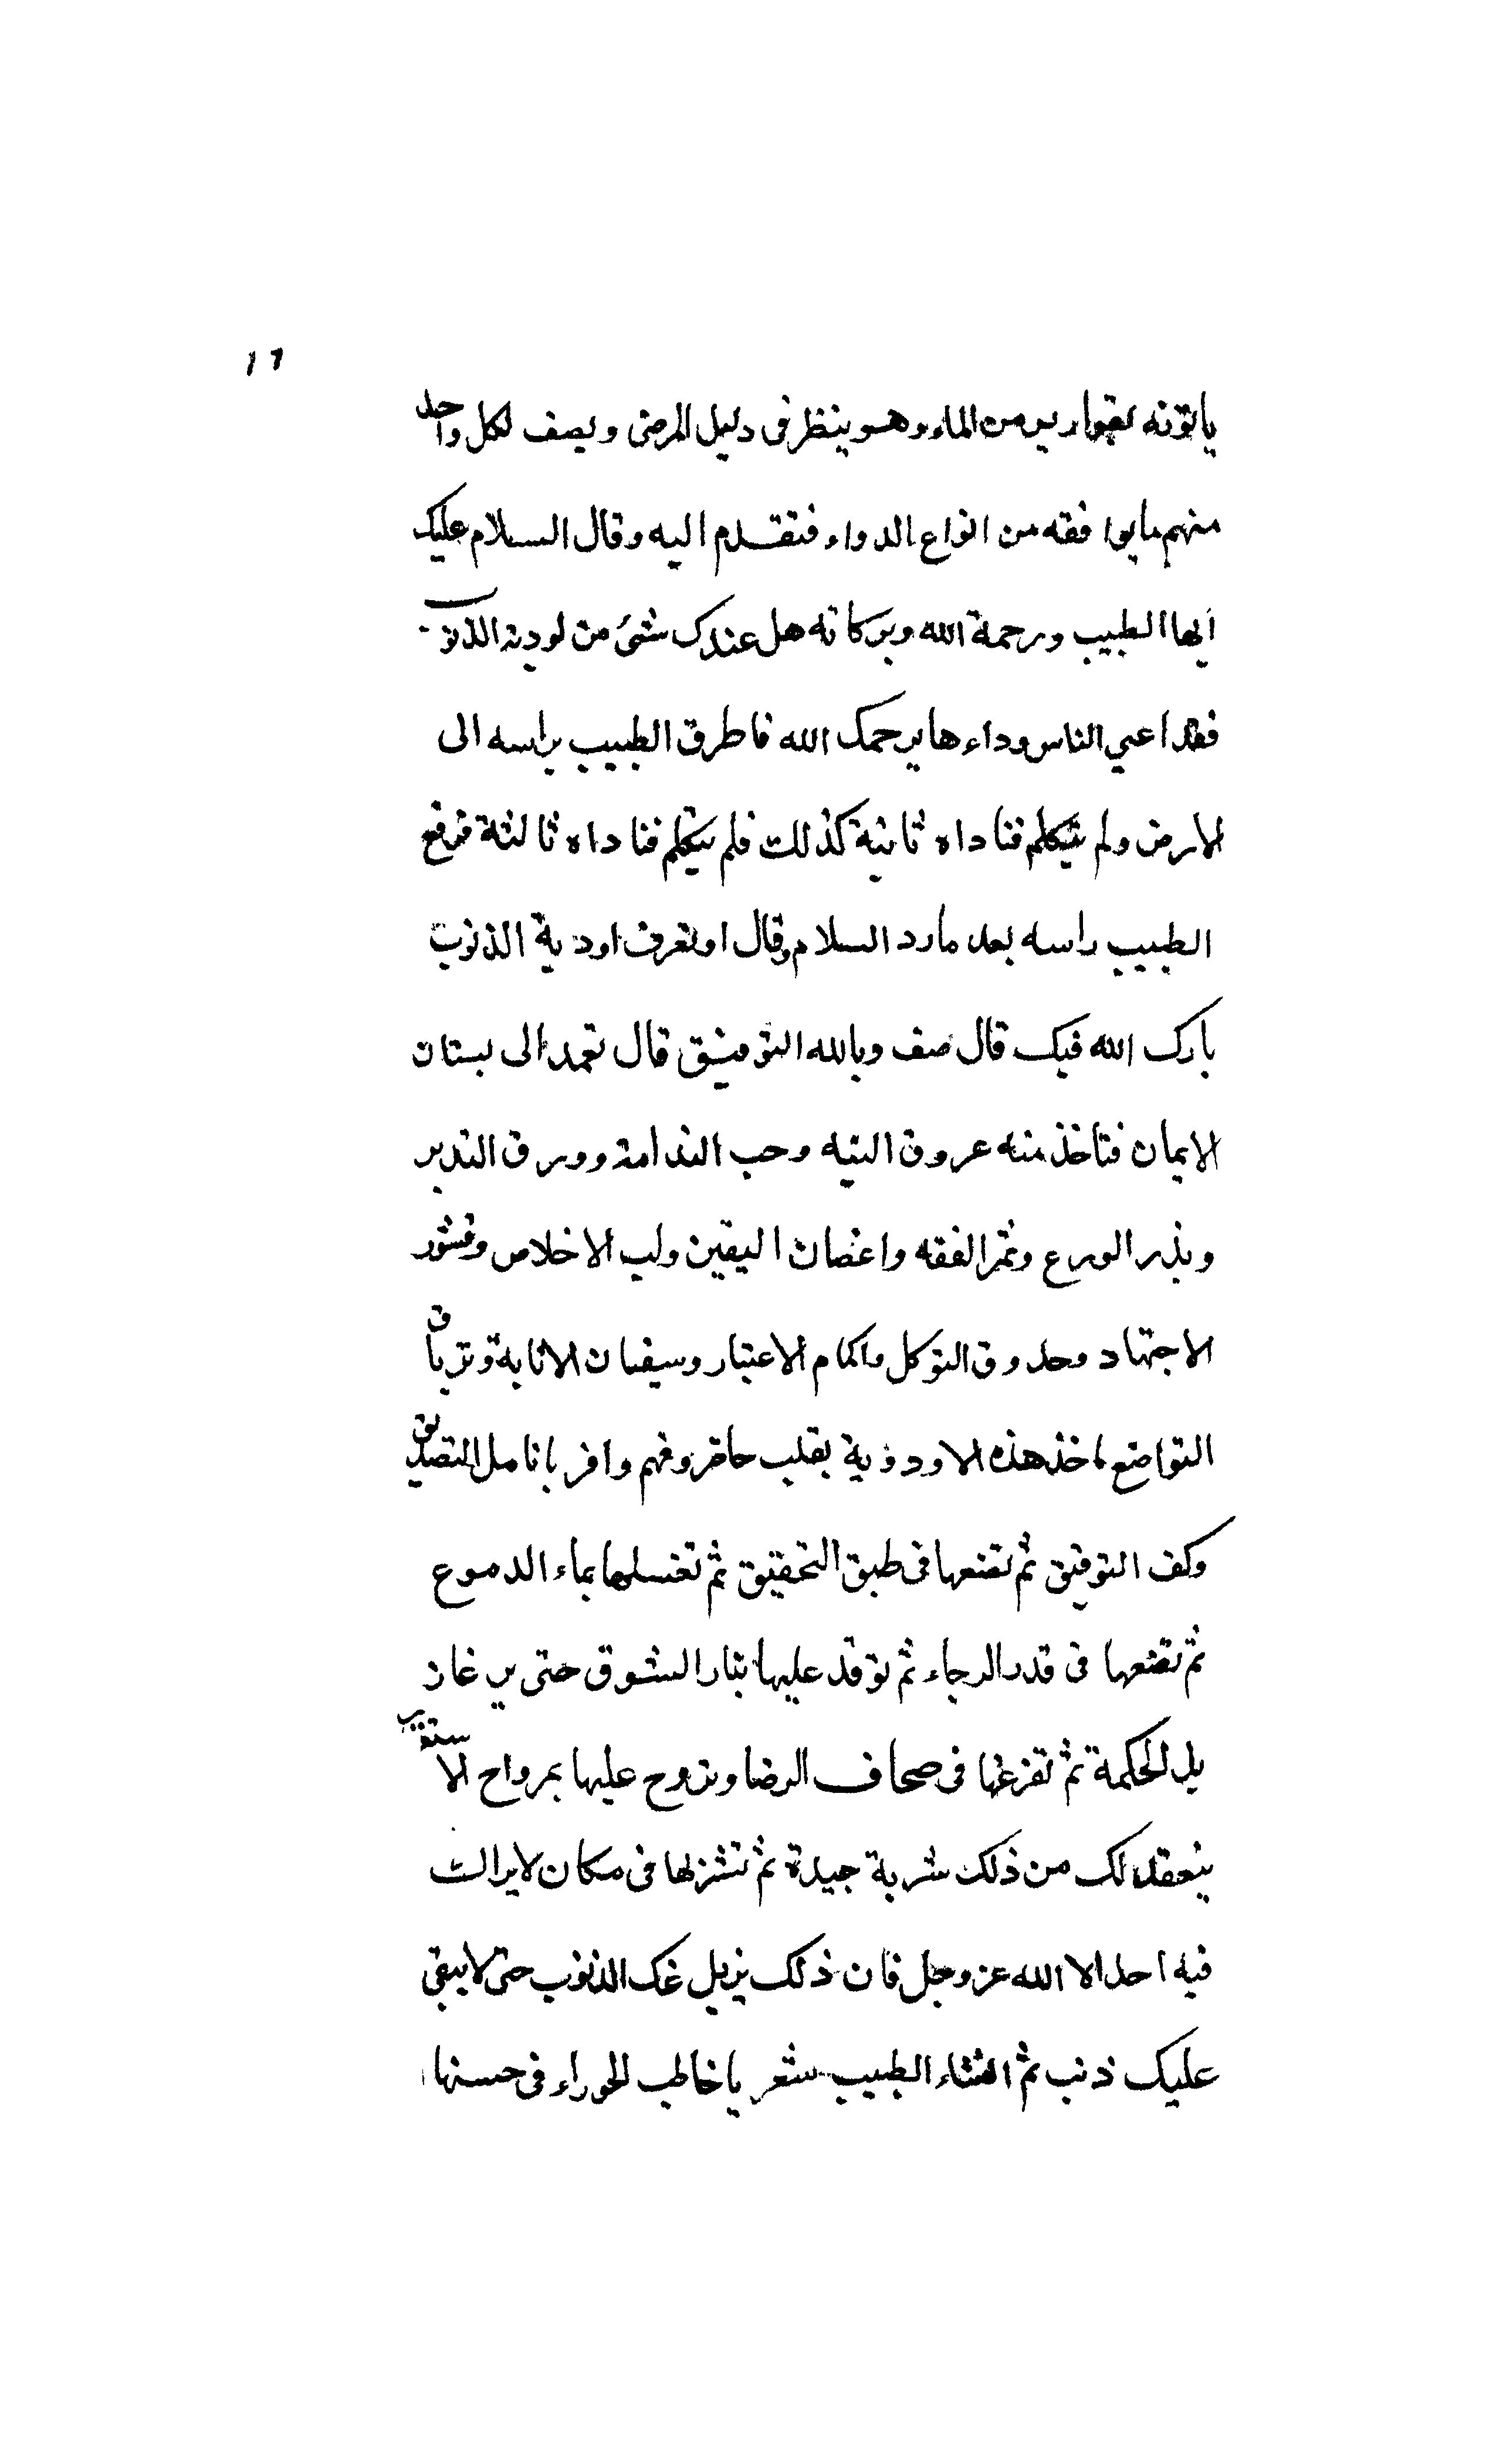 ١٦
ياتونه بقوارير من الماء وهو ينظر فى دليل المرضى ويصف لكل واحد
منهم ما يوافقه من انواع الدواء فتقدم اليه وقال السلام عليك
ايها الطبيب ورحمة الله وبركاته هل عندك شئ من لودية الذنوب
فقد اعي الناس دواءها يرحمك الله فاطرق الطبيب براسه الى
الارض ولم يتكلم فناداه ثانية كذلك فلم يتكلم فناداه ثالثة فرفع
الطبيب راسه بعد مارد السلام وقال اوتعرف اودية الذنوب
بارك الله فيك قال صف وبالله التوفيق قال تعمد الى بستان
الايمان فتاخذ منه عروق النيه وحب الندامة وورق التدبر
وبذر الورع وثمر الفقه واغصان اليقين ولب الاخلاص وقشور
الاجتهاد وحدوق التوكل واكمام الاعتبار وسيفان الانابة وترياق
التواضع تاخذ هذه الاودوية بقلب حاضر وفهم وافر بانامل التصديق
وكف التوفيق ثم تضعها فى طبق التحقيق ثم تغسلها بماء الدموع
ثم تضعها فى قدر الرجاء ثم توقد عليها بنار الشوق حتى يرغا ز
بل الحكمة ثم تفرغها فى صحاف الرضا وتروح عليها بمرواح الا
ينعقد لك من ذلك شربة جيدة ثم تشربها فى مكان لا يراك
فيه احد الا الله عز وجل فان ذلك يزيل عنك الذنوب حتى لا يبقى
عليك ذنب ثم انشاء الطبيب شعر يا خاطب الحوراء فى حسنها